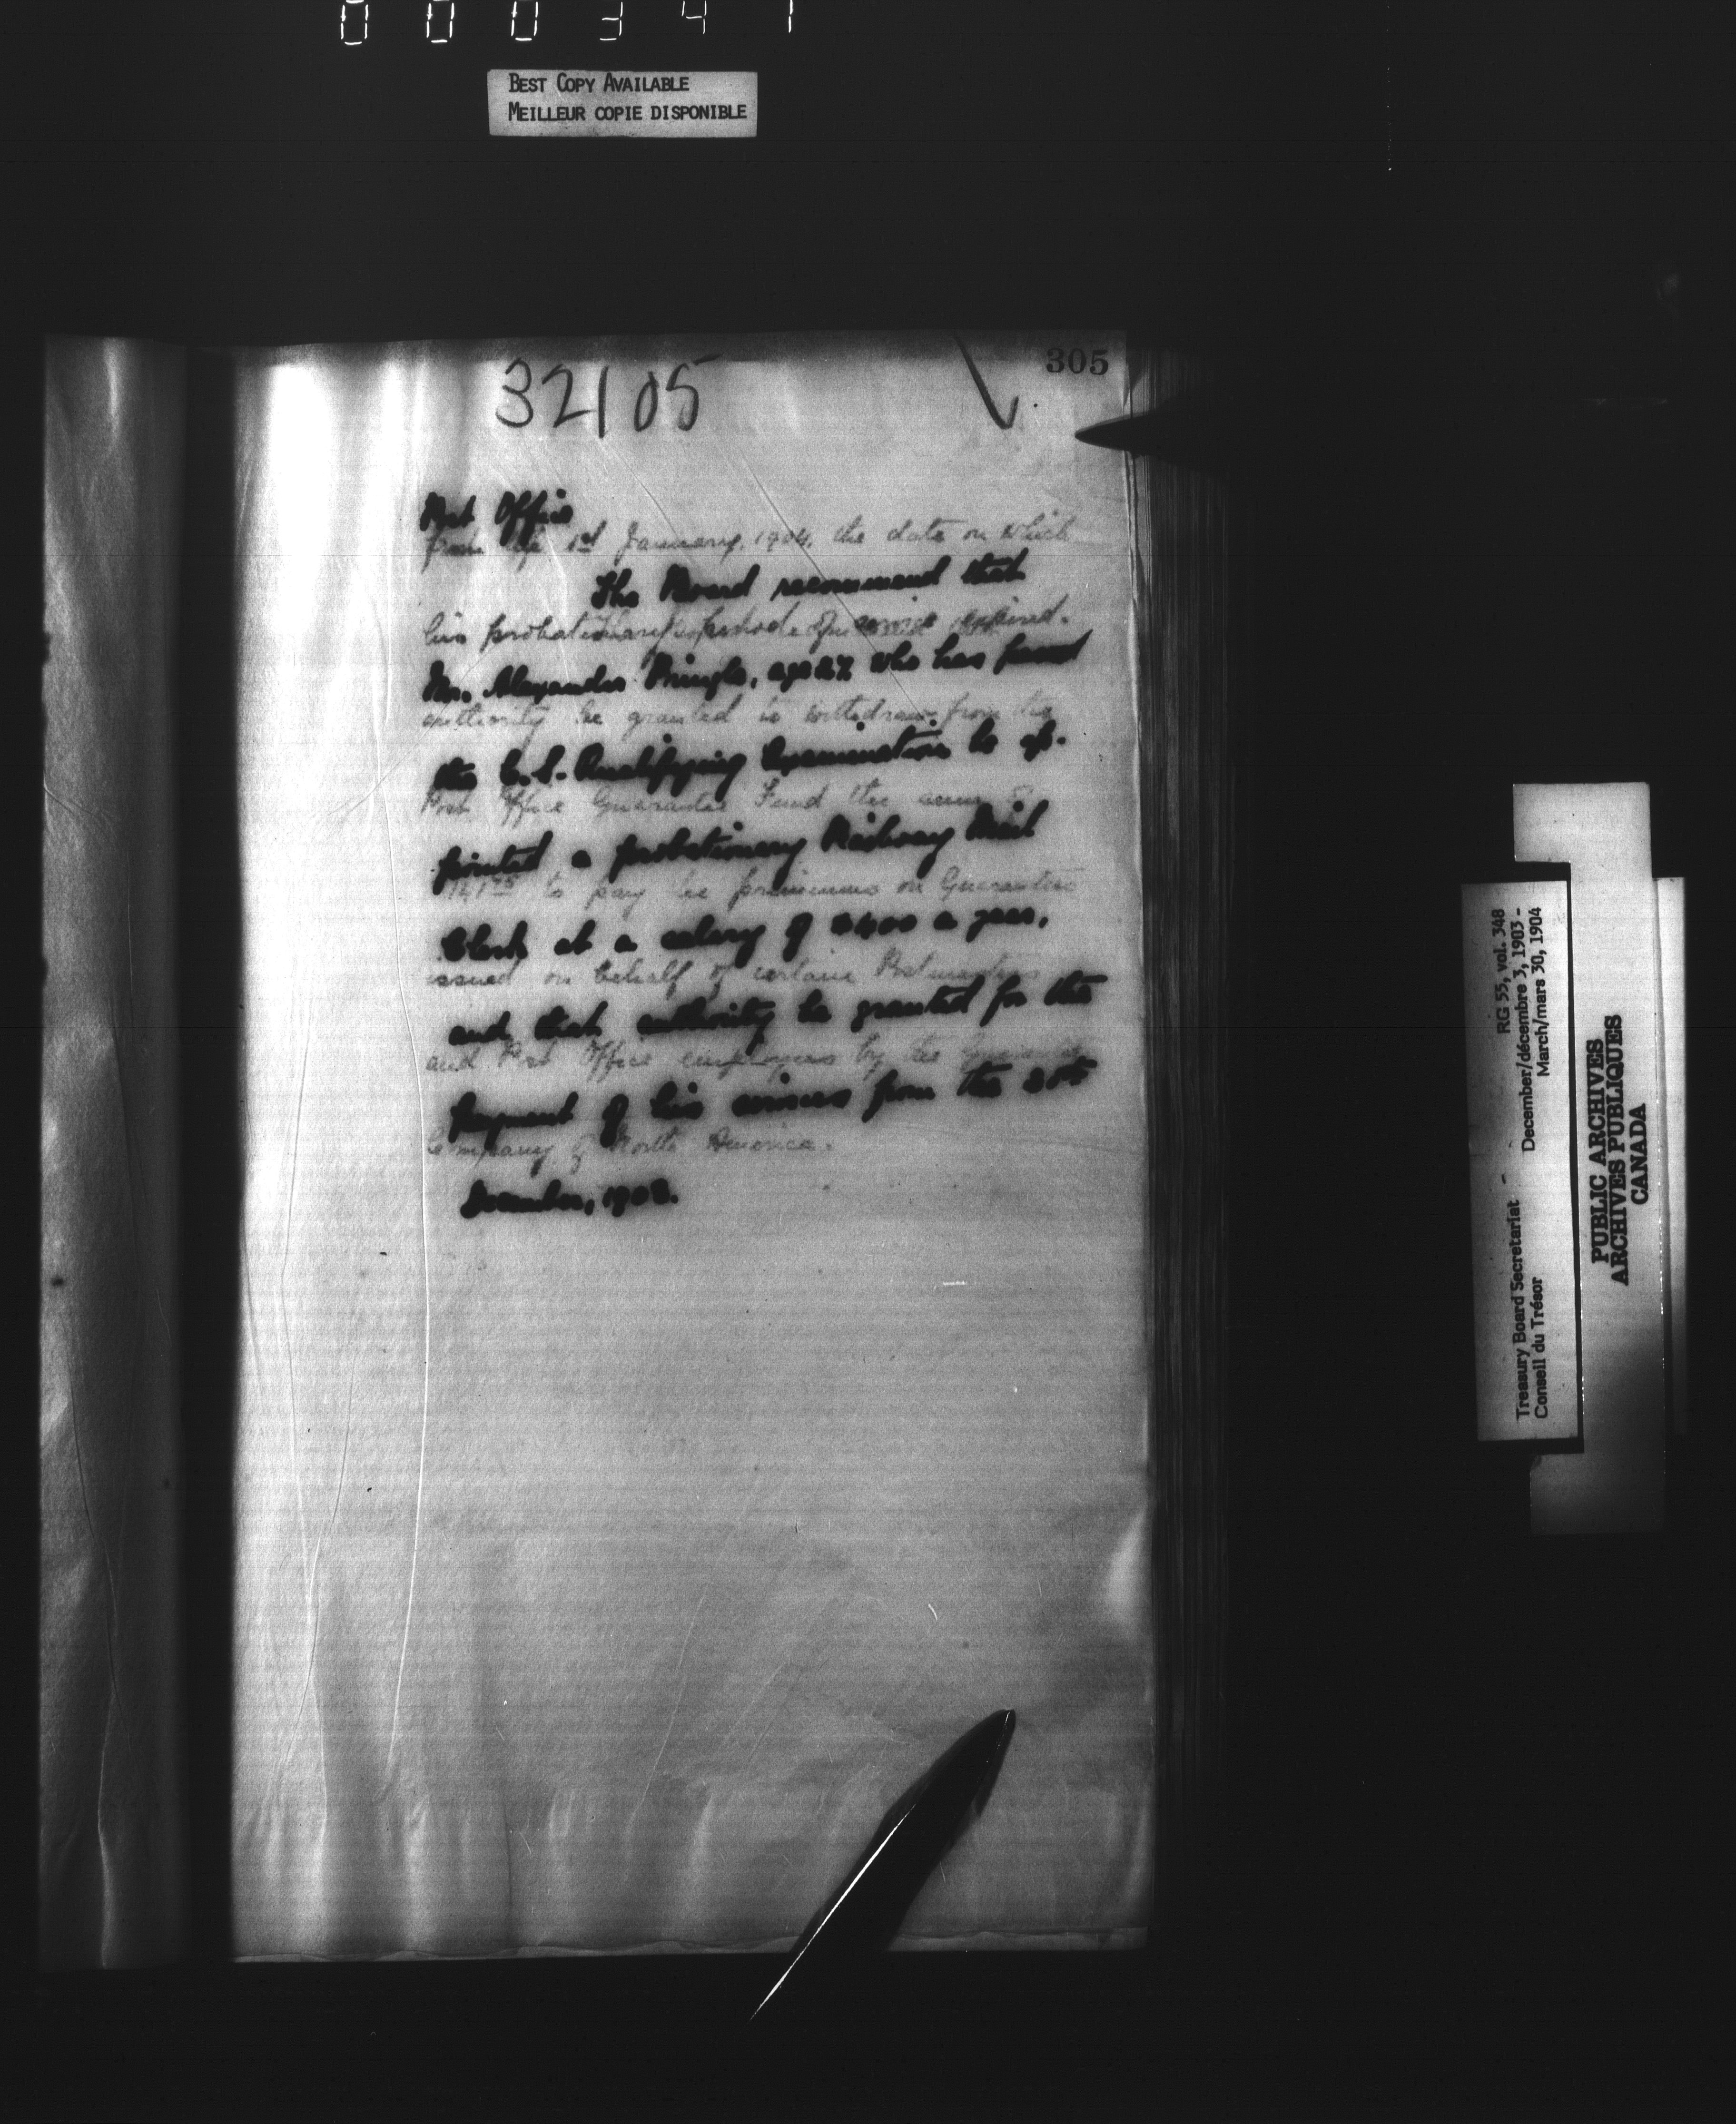 000341
BEST COPY AVAILABLE
MEILLEUR COPIE DISPONIBLE
305
32105
Post Office
from the 1st January, 1904, the date on which
The Board recommend that
his probationary period of service expired.
Mr. Alexander Pringle, age 27 who has passed
authority be granted to withdraw from the
the C.S. Qualifying Examination be ap-
Post Office Guarantee Fund the sum of
pointed a probationary Railway Mail
to pay the premiums on Guarantees
Clerk at a salary of $400 a year,
issued on behalf of certain Postmasters
and that authority be granted for the
and Post Office employees by the Guarantee
payment of his services from the
Company of North America.
December, 1903.
Treasury Board Secretariat - RG 55, vol. 348
Conseil du Trésor December/décembre 3, 1903 -
March/mars 30, 1904
PUBLIC ARCHIVES
ARCHIVES PUBLIQUES
CANADA